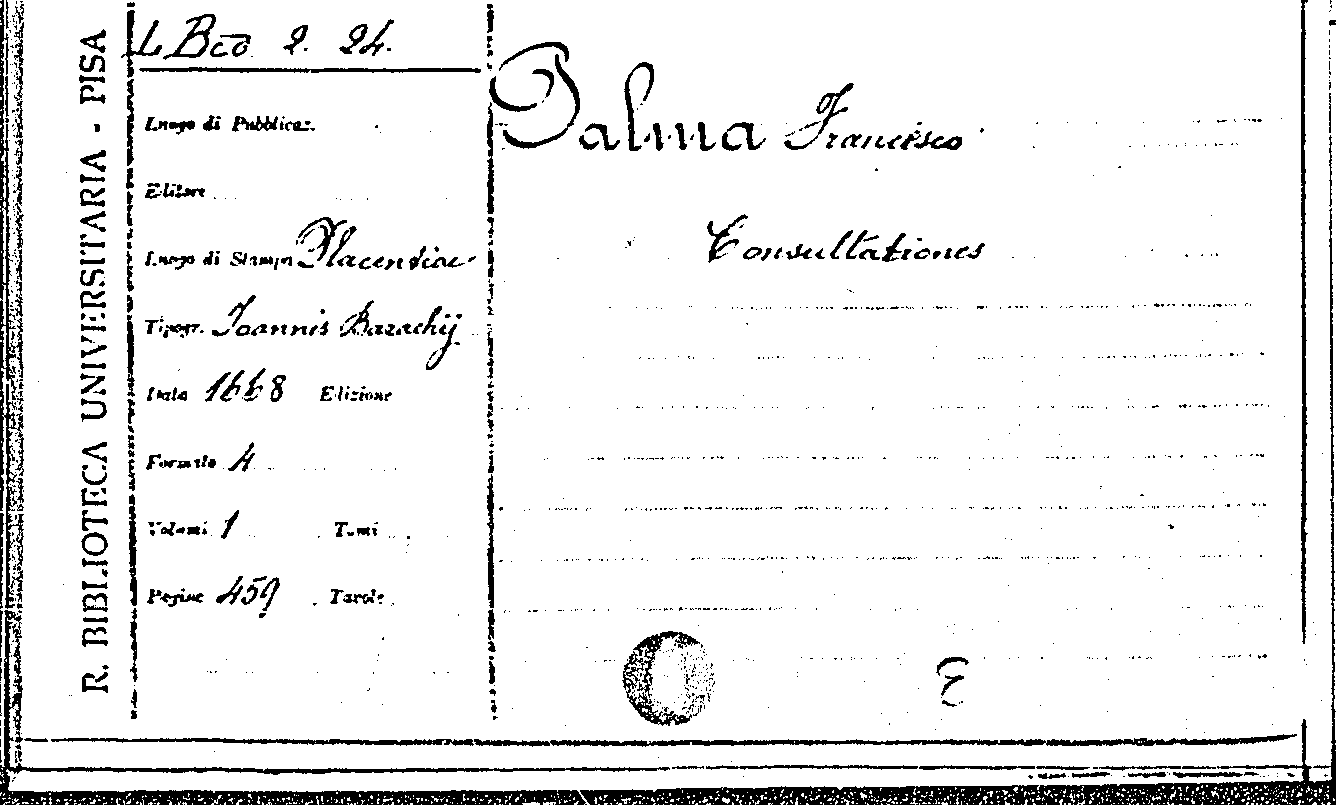 R. BIBLIOTECA UNIVERSITARIA - PISA
L Bco 2. 24.
Luogo di Pubblicaz.
Editore
Luogo di Stampa Placentiae
Tipogr. Joannis Bazachij
Data 1668 Edizione
Formato 4
Volumi 1 Tomi
Pagine 459 Tavole
Palma Francisco
Consultationes
E